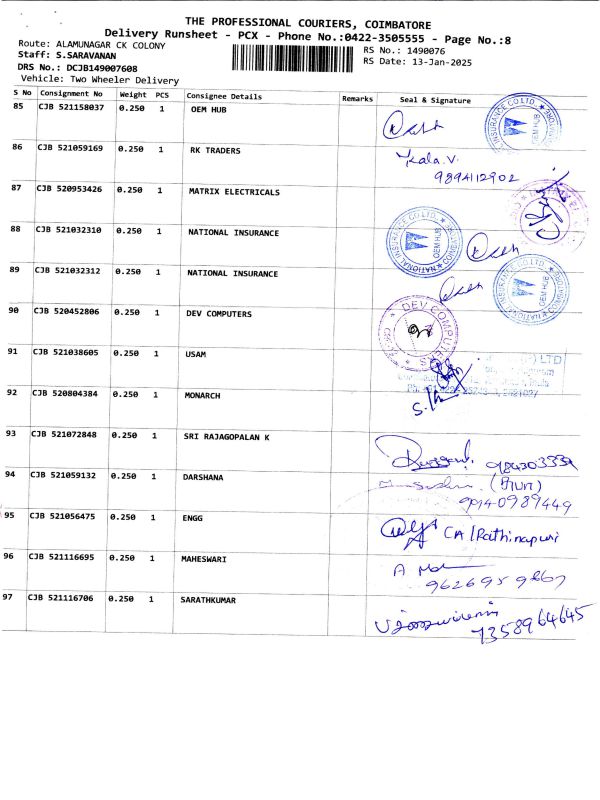 THE PROFESSIONAL COURIERS, COIMBATORE
Delivery Runsheet - PCX - Phone No.:0422-3505555 - Page No.:8
Route: ALAMUNAGAR CK COLONY
RS No.: 1490076
Staff: S.SARAVANAN
RS Date: 13-Jan-2025
DRS No.: DCJB149007608
Vehicle: Two Wheeler Delivery
S No Consignment No Weight PCS Consignee Details Remarks Seal & Signature
85 CJB 521158037 0.250 1 OEM HUB
INSURANCE CO LTD. OEM HUB
86 CJB 521059169 0.250 1 RK TRADERS
Kala.V.
9894112902
87 CJB 520953426 0.250 1 MATRIX ELECTRICALS
88 CJB 521032310 0.250 1 NATIONAL INSURANCE
NATIONAL INSURANCE CO LTD. OEM HUB COIMBATORE
89 CJB 521032312 0.250 1 NATIONAL INSURANCE
INSURANCE CO LTD. OEM HUB COIMBATORE
90 CJB 520452806 0.250 1 DEV COMPUTERS
DEV COMPUTERS
91 CJB 521038605 0.250 1 USAM
LTD
92 CJB 520804384 0.250 1 MONARCH
93 CJB 521072848 0.250 1 SRI RAJAGOPALAN K
94 CJB 521059132 0.250 1 DARSHANA
95 CJB 521056475 0.250 1 ENGG
CA/Rathinapuri
96 CJB 521116695 0.250 1 MAHESWARI
97 CJB 521116706 0.250 1 SARATHKUMAR
7358964645